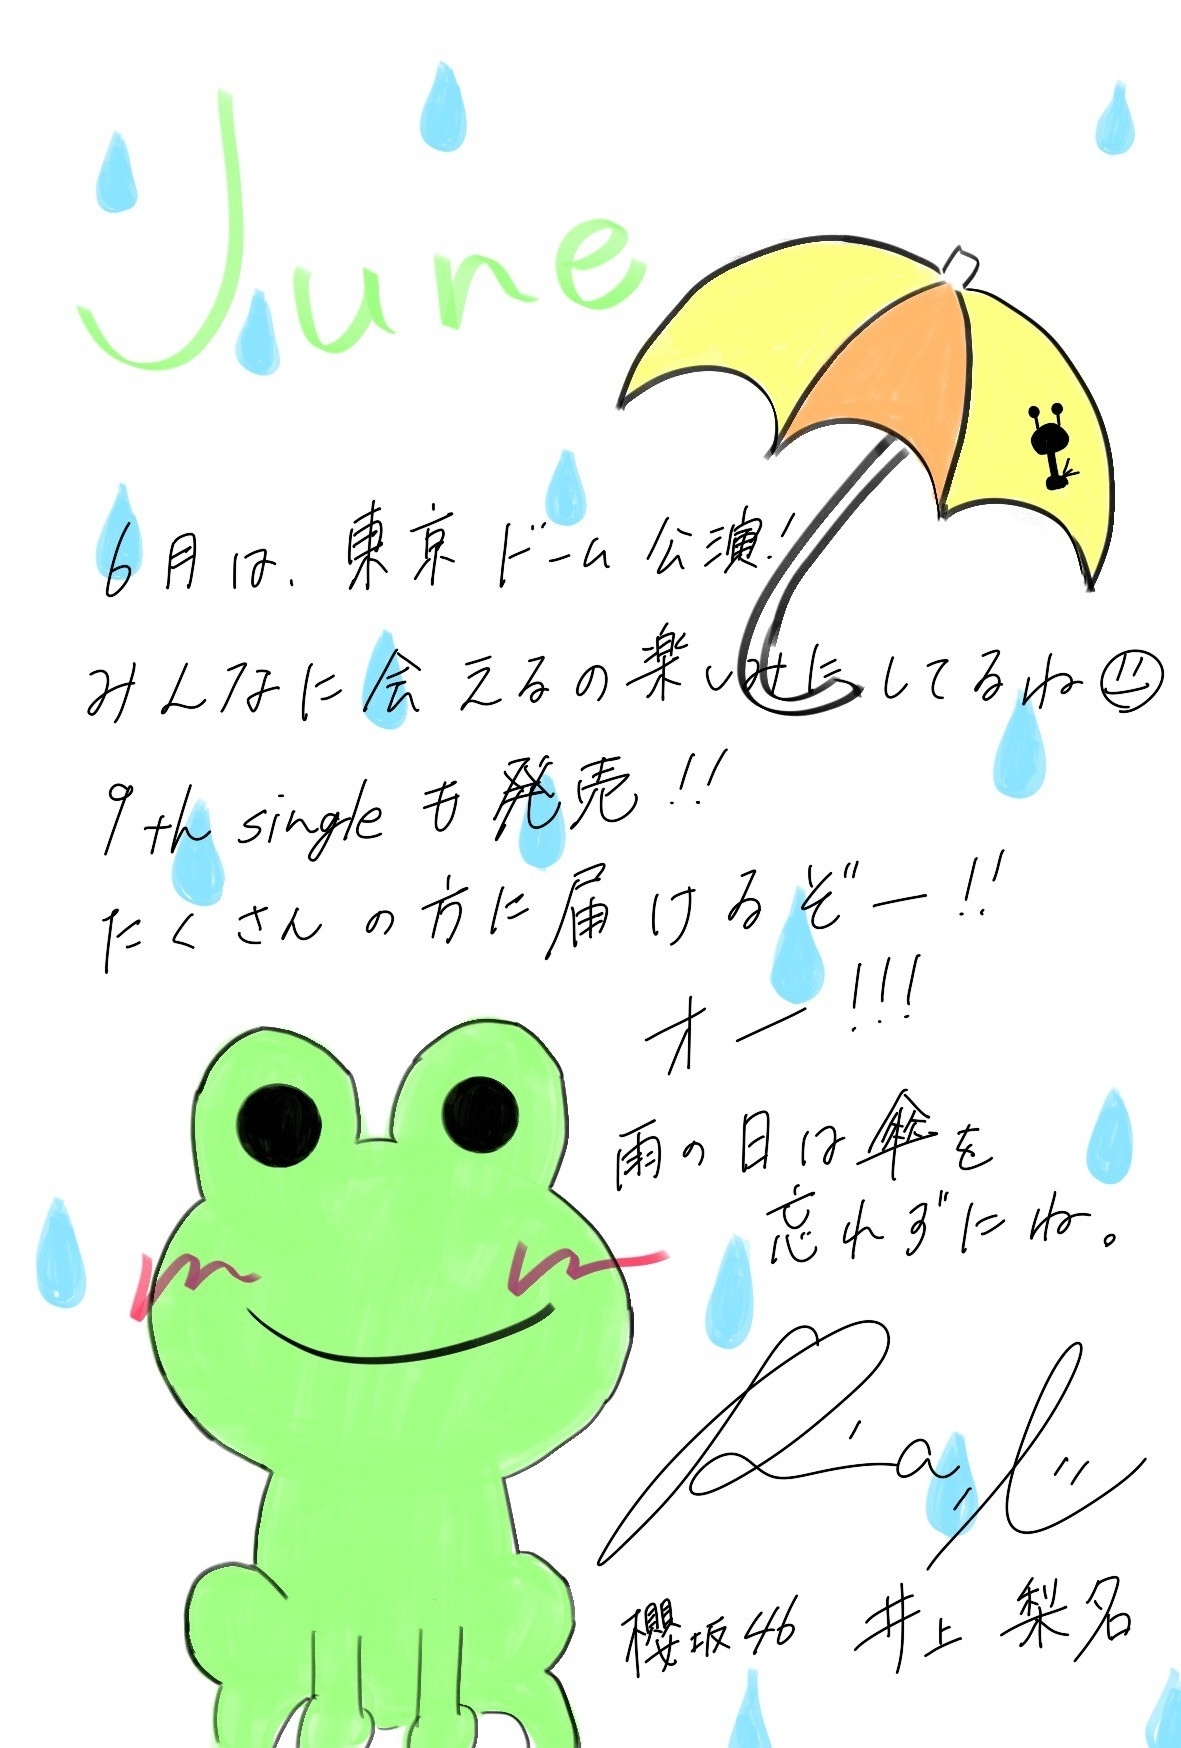 June
6月は、東京ドーム公演!
みんなに会えるの楽しみにしてるね
9th singleも発売!!
たくさんの方に届けるぞー!!
オー!!!
雨の日は傘を
忘れずにね。
Rina
櫻坂46 井上 梨名